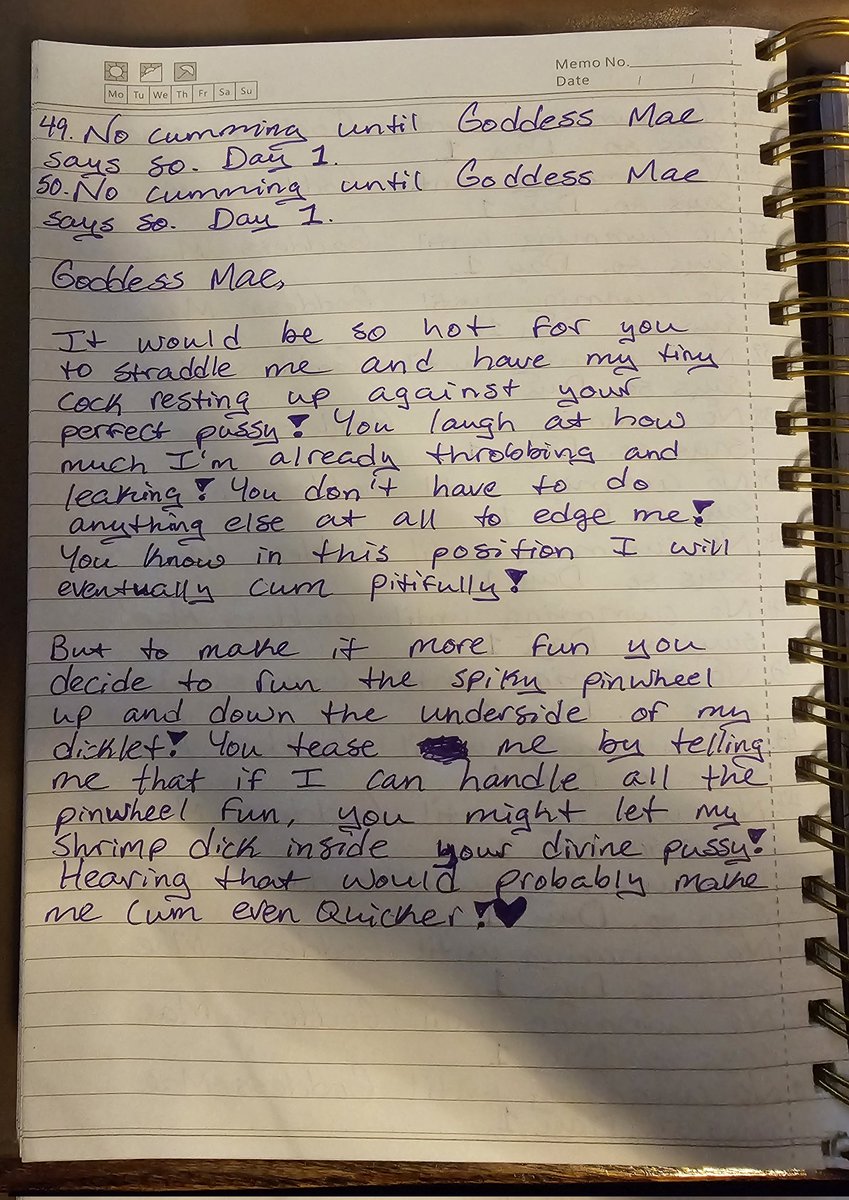 Memo No.
Date / /
Mo Tu We Th Fr Sa Su
49. No cumming until Goddess Mae
says so. Day 1.
50. No cumming until Goddess Mae
says so. Day 1.
Goddess Mae,
It would be so hot for you
to straddle me and have my tiny
cock resting up against your
perfect pussy! You laugh at how
much I'm already throbbing and
leaking! You don't have to do
anything else at all to edge me!
You know in this position I will
eventually cum pitifully!
But to make it more fun you
decide to run the spiky pinwheel
up and down the underside of my
dicklet! You tease me by telling
me that if I can handle all the
pinwheel fun, you might let my
shrimp dick inside your divine pussy!
Hearing that would probably make
me cum even Quicker!♥